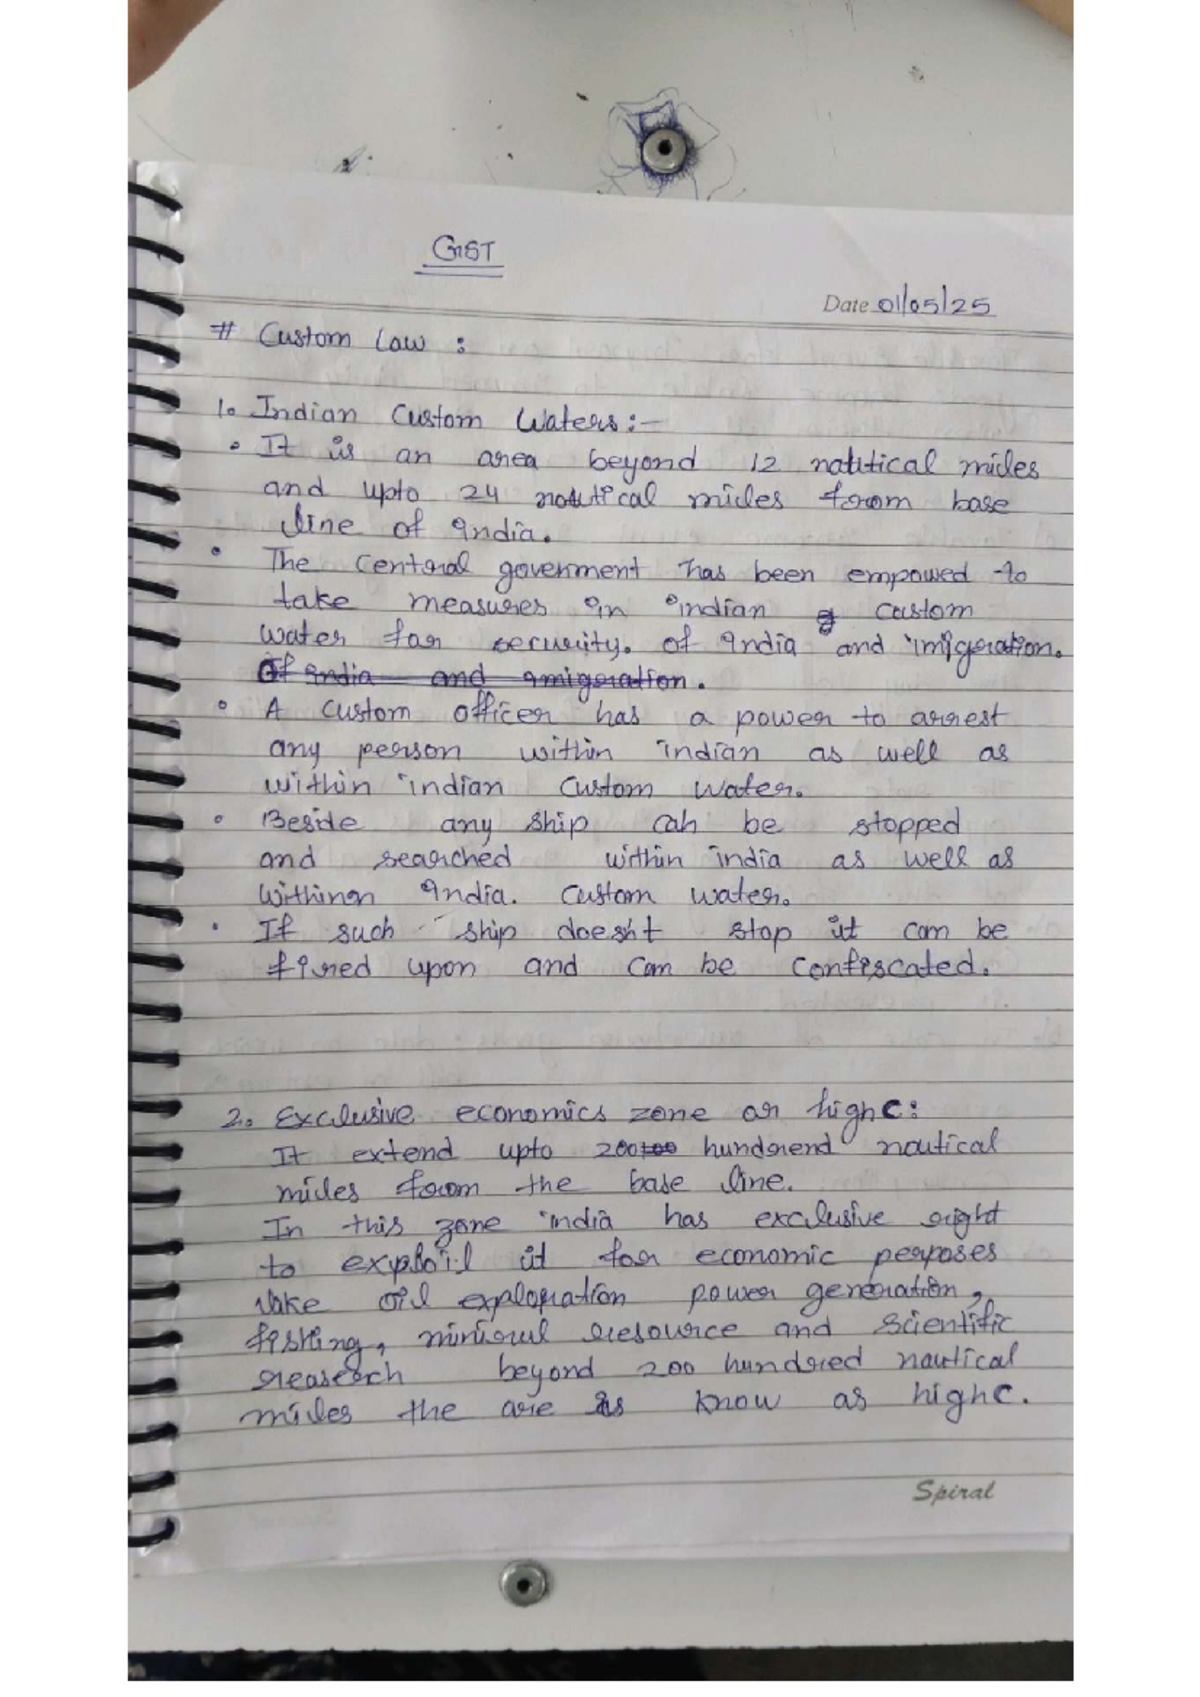 GST
Date 01/05/25
# Custom Law :
1. Indian Custom Waters:-
• It is an area beyond 12 natutical miles
and upto 24 nautical miles from base
line of India.
• The Central goverment has been empowed to
take measures in indian custom
water for security. of India and imigeration.
Of India and amigeration.
• A custom officer has a power to arrest
any person within indian as well as
within indian custom water.
• Beside any ship can be stopped
and searched within india as well as
withinen India. custom water.
• If such ship doesn't stop it can be
fired upon and can be confiscated.
2. Exclusive economics zone or highc:
It extend upto 200 hundrend nautical
miles from the base line.
In this zone india has exclusive right
to exploil it for economic perposes
like oil exploration power generation,
fishing, minirul resource and scientific
reaserch beyond 200 hundred nautical
miles the are is know as highc.
Spiral